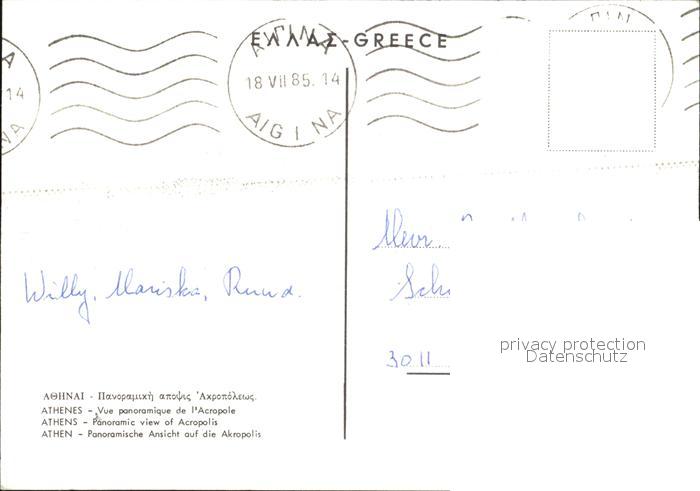 ΕΛΛΑΣ-GREECE
ΑΙΓΙΝΑ
18 VII 85. 14
AIGINA
14
Mevr.
Willy, Mariska, Ruud.
3011
privacy protection
Datenschutz
ΑΘΗΝΑΙ - Πανοραμικὴ αποψις Ἀκροπόλεως.
ATHENES – Vue panoramique de l'Acropole
ATHENS – Panoramic view of Acropolis
ATHEN – Panoramische Ansicht auf die Akropolis